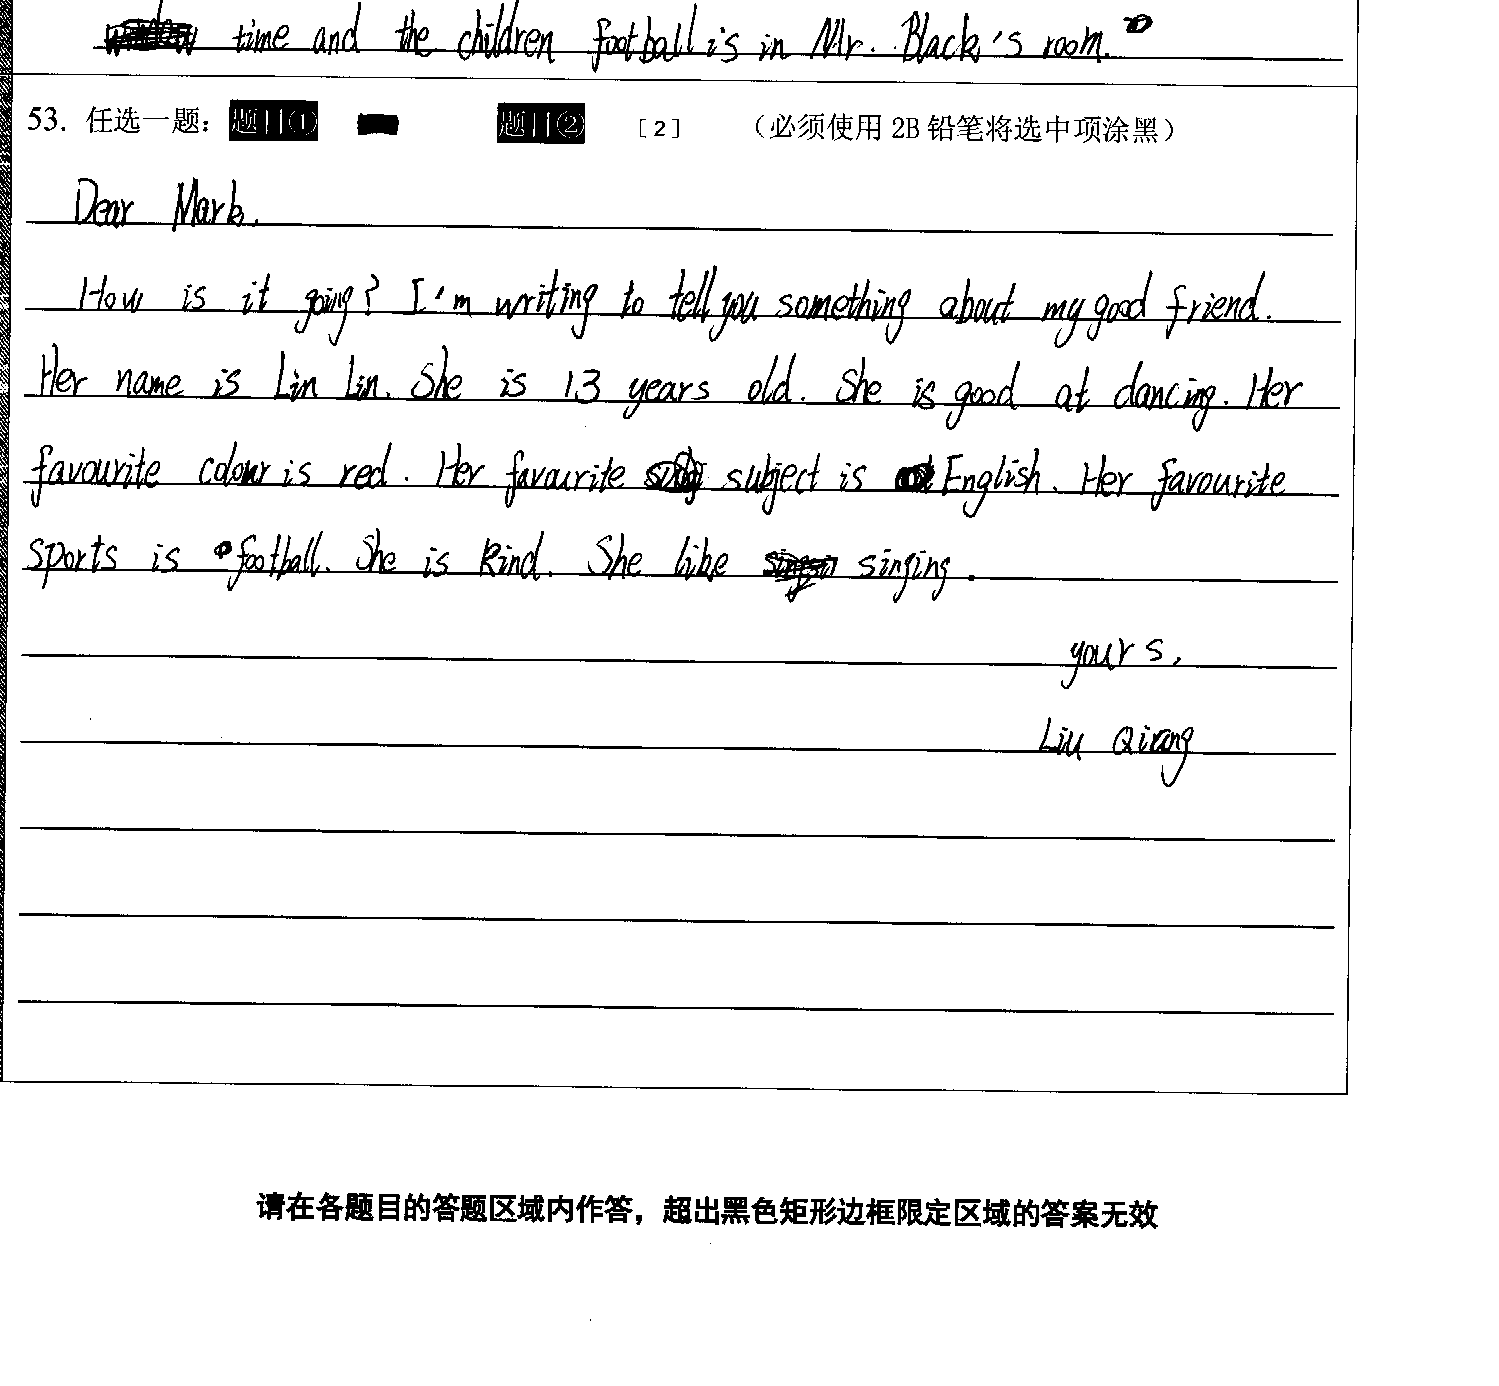 time and the children football is in Mr. Black's room.
53. 任选一题： 题目① 题目② [2] （必须使用 2B 铅笔将选中项涂黑）
Dear Mark.
How is it going? I'm writing to tell you something about my good friend.
Her name is Lin Lin. She is 13 years old. She is good at dancing. Her
favourite colour is red. Her favourite subject is English. Her favourite
sports is football. She is kind. She like singing.
yours,
Liu Qiang
请在各题目的答题区域内作答，超出黑色矩形边框限定区域的答案无效